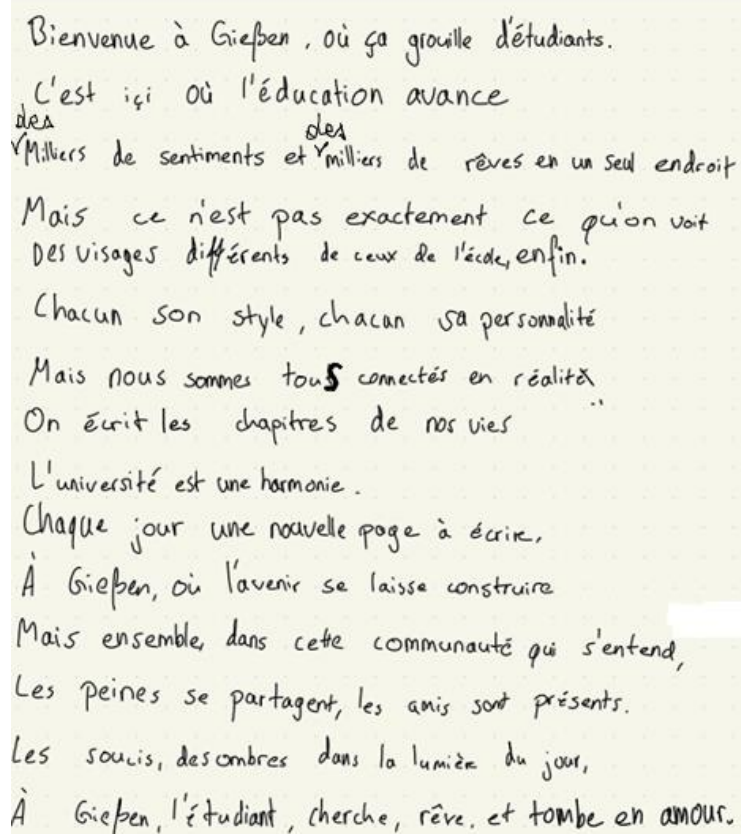 Bienvenue à Gießen, où ça grouille d'étudiants.
C'est içi où l'éducation avance
des Milliers de sentiments et des milliers de rêves en un seul endroit
Mais ce n'est pas exactement ce qu'on voit
Des visages différents de ceux de l'école, enfin.
Chacun son style, chacun sa personnalité
Mais nous sommes tous connectés en réalité
On écrit les chapitres de nos vies
L'université est une harmonie.
Chaque jour une nouvelle page à écrire,
À Gießen, où l'avenir se laisse construire
Mais ensemble, dans cette communauté qui s'entend,
Les peines se partagent, les amis sont présents.
Les soucis, des ombres dans la lumière du jour,
À Gießen, l'étudiant, cherche, rêve, et tombe en amour.